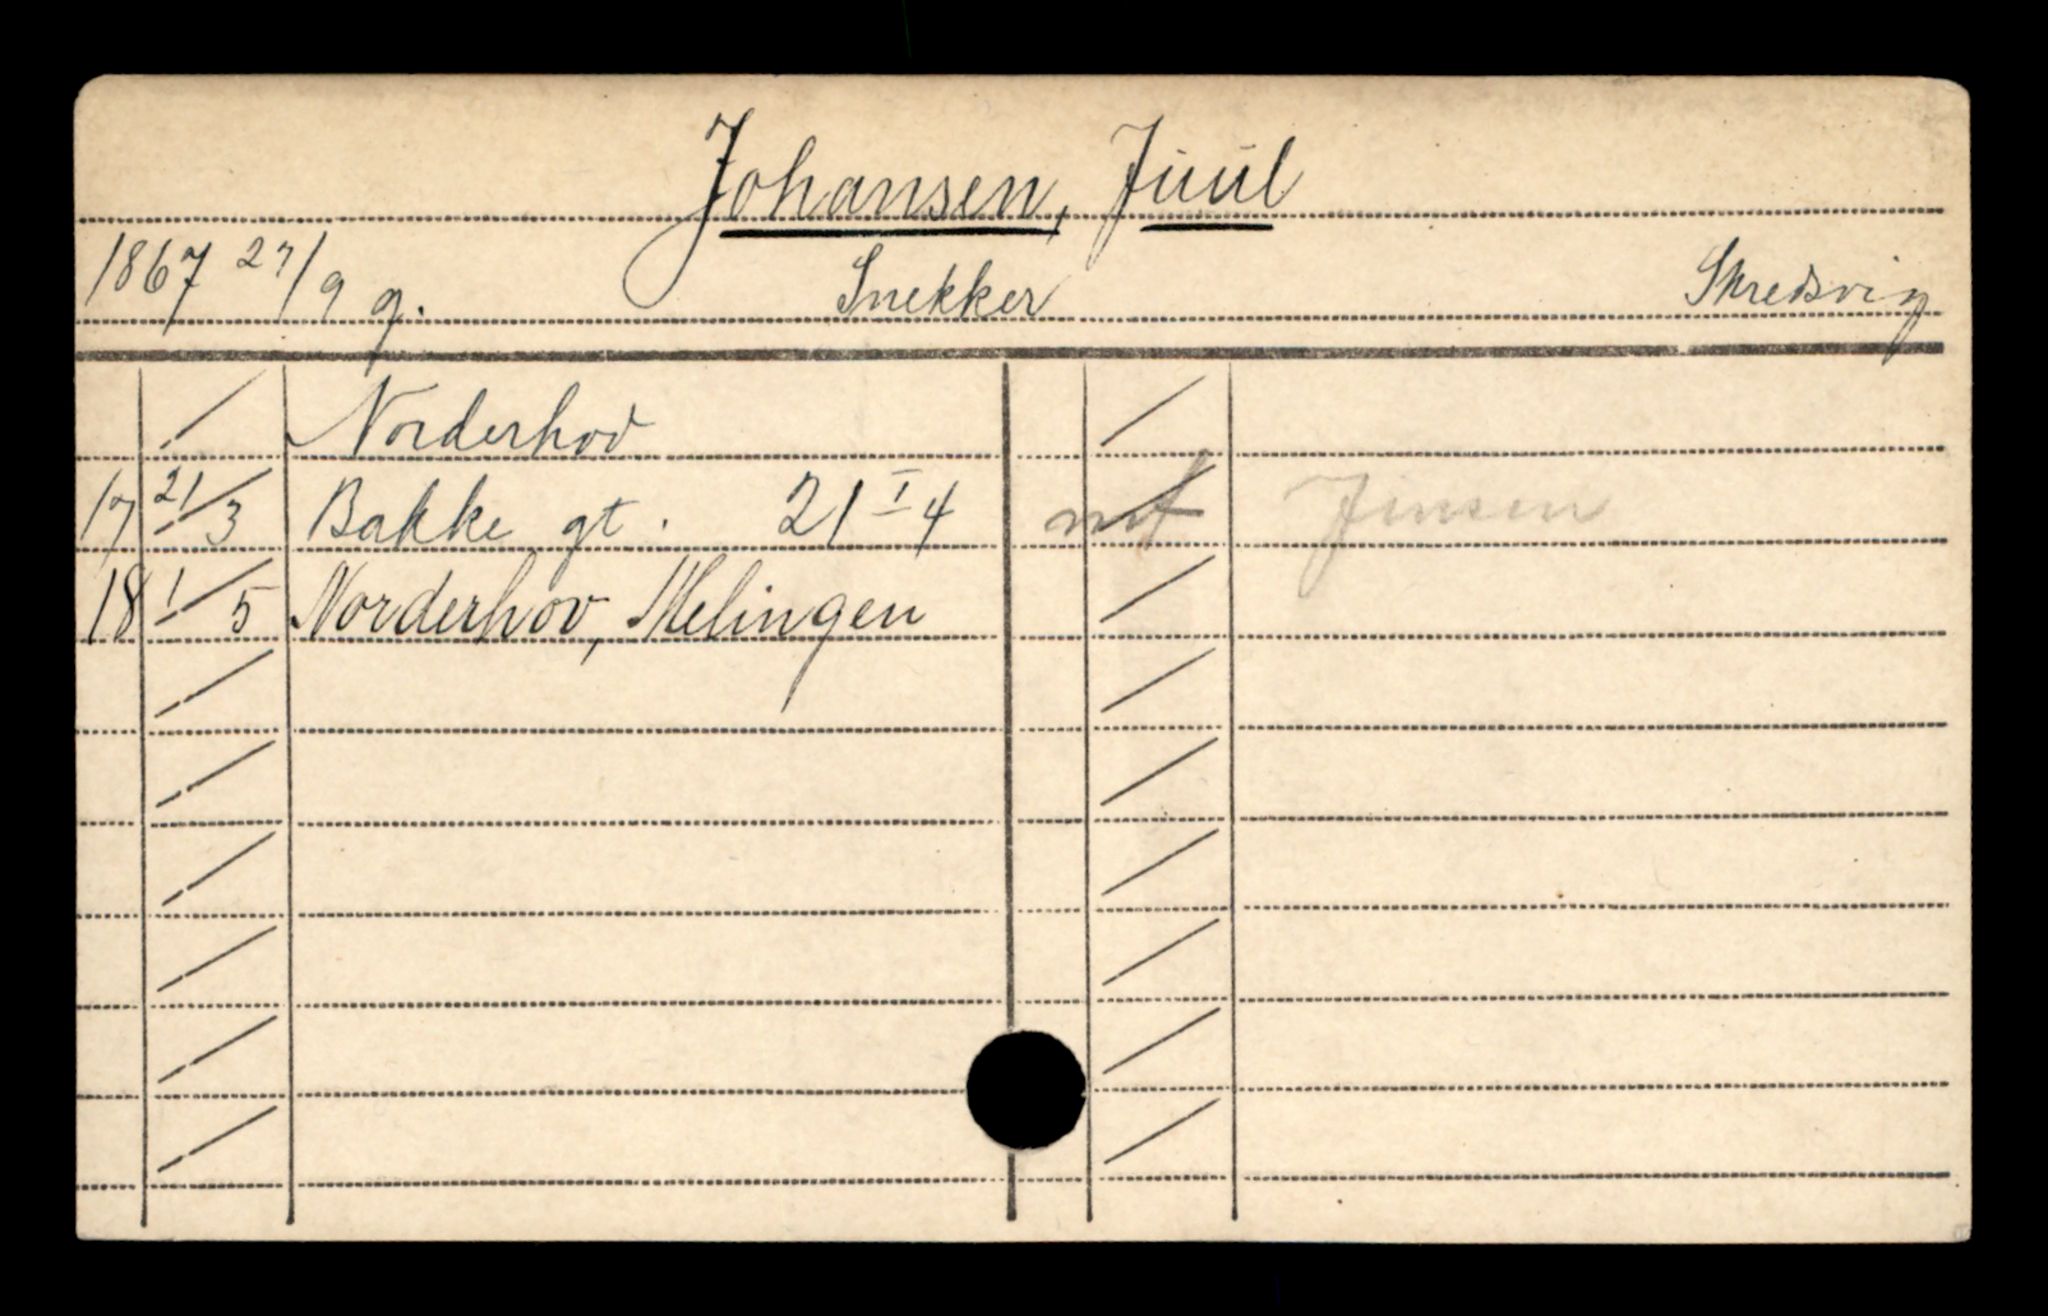 Johansen, Juul
1867 27/9 g. Snekker Skredsvig
Norderhov
17 21/3 Bakke gt. 21 I 4
Jensen
18 1/5 Norderhov, Helingen